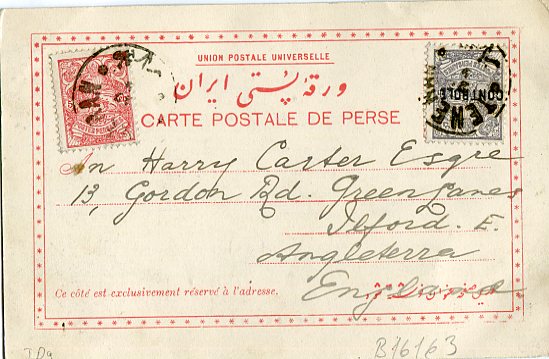 UNION POSTALE UNIVERSELLE
ورقهٔ پستی ایران
CARTE POSTALE DE PERSE
CONTROLE
An Harry Carter Esqre
13, Gordon Rd. Green Lanes
Ilford. E.
Angleterra
England
Ce côté est exclusivement réservé à l'adresse.
IDa
B16163